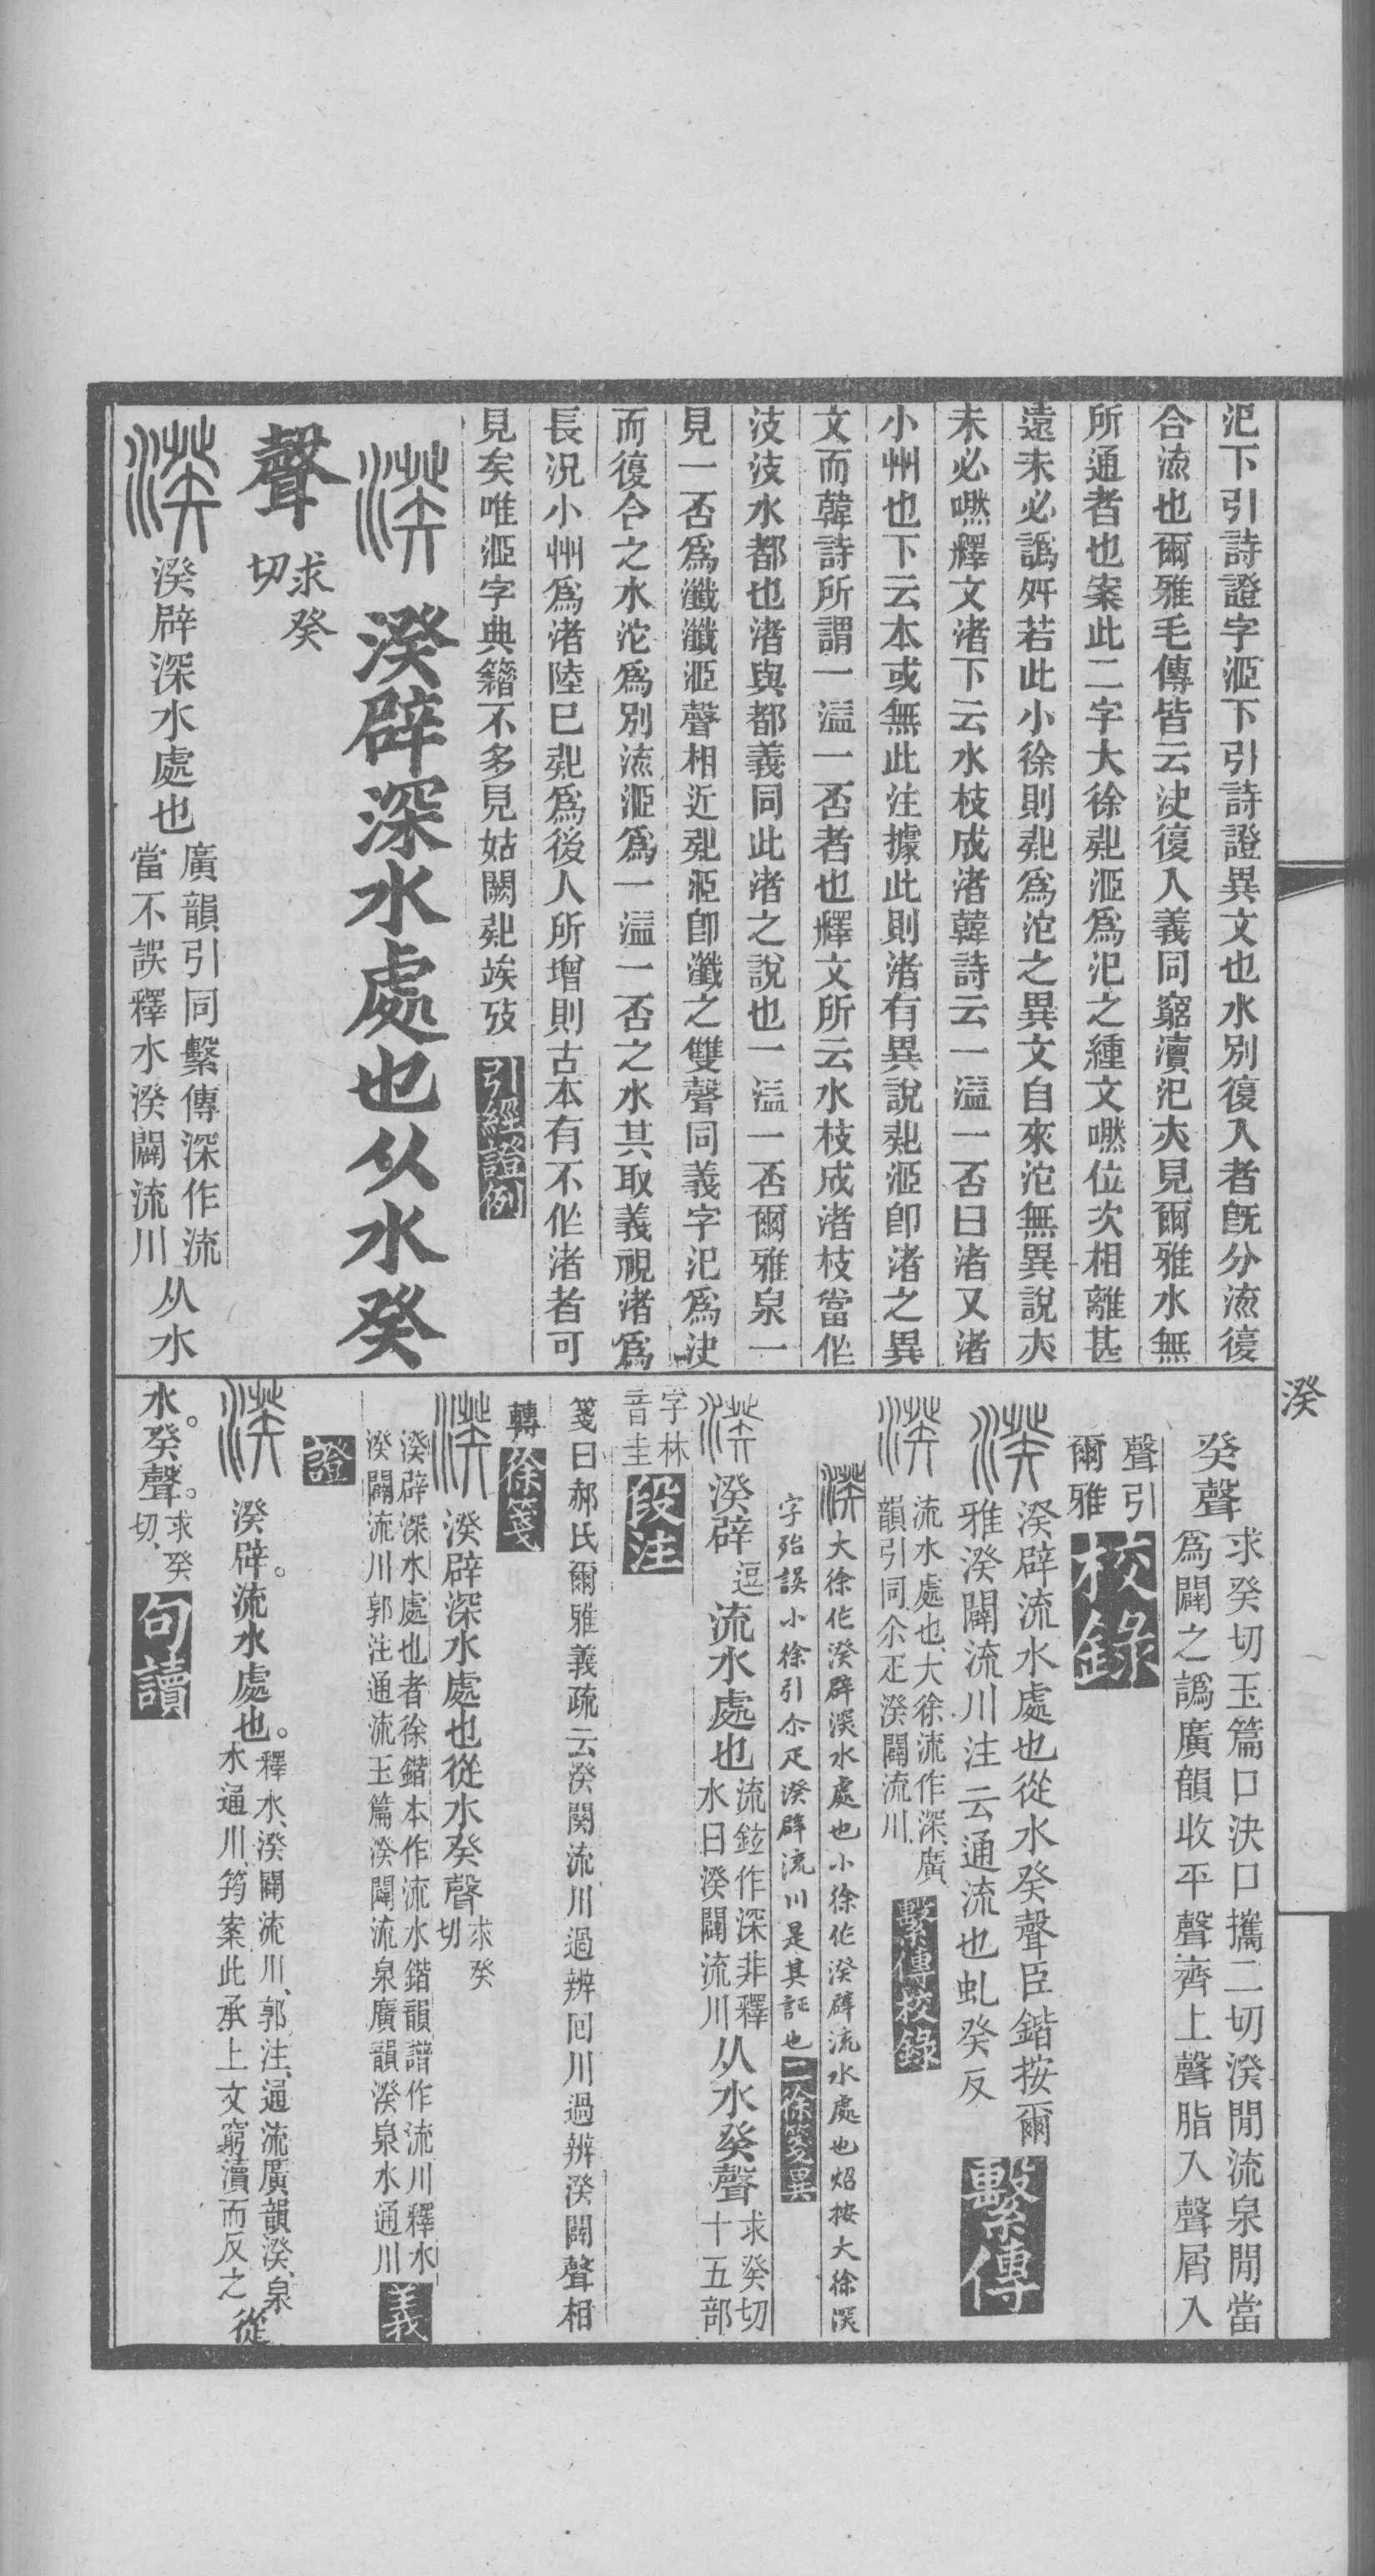 汜下引詩證字洍下引詩證異文也水別復入者旣分流復
合流也爾雅毛傳皆云決復入義同窮瀆汜亦見爾雅水無
所通者也案此二字大徐疑洍爲汜之緟文嘫位次相離甚
遠未必譌舛若此小徐則疑爲沱之異文自來沱無異說亦
未必嘫釋文渚下云水枝成渚韓詩云一溢一否曰渚又渚
小州也下云本或無此注據此則渚有異說疑洍卽渚之異
文而韓詩所謂一溢一否者也釋文所云水枝成渚枝當作
汥汥水都也渚與都義同此渚之說也一溢一否爾雅泉一
見一否爲瀸瀸洍聲相近疑洍卽瀸之雙聲同義字汜爲決
而復合之水沱爲別流洍爲一溢一否之水其取義視渚爲
長況小州爲渚陸巳疑爲後人所增則古本有不作渚者可
見矣唯洍字典籍不多見姑闕疑竢攷 引經證例
湀 湀辟深水處也从水癸
聲 求癸切
湀 湀辟深水處也 廣韻引同繫傳深作流當不誤釋水湀闢流川 从水
湀
癸聲 求癸切玉篇口決口攜二切湀閒流泉閒當爲闢之譌廣韻收平聲齊上聲脂入聲屑入
聲引爾雅 校錄
湀 湀辟流水處也從水癸聲臣鍇按爾雅湀闢流川注云通流也虬癸反 繫傳
湀 流水處也大徐流作深廣韻引同尒疋湀闢流川 繫傳校錄
湀大徐作湀辟深水處也小徐作湀辟流水處也炤按大徐深
字殆誤小徐引尒疋湀辟流川是其証也 二徐箋異
湀 湀辟 逗 流水處也 流鉉作深非釋水曰湀闢流川 从水癸聲 求癸切十五部
字林音圭 段注
箋曰郝氏爾雅義疏云湀闢流川過辨回川過辨湀闢聲相
轉 徐箋
湀 湀辟深水處也從水癸聲 求癸切
湀辟深水處也者徐鍇本作流水鍇韻譜作流川釋水湀闢流川郭注通流玉篇湀闢流泉廣韻湀泉水通川 義
證
湀 湀辟。流水處也。 釋水、湀闢流川、郭注、通流廣韻湀、泉水通川、筠案此承上文窮瀆而反之 從
水。癸聲。 求癸切、 句讀